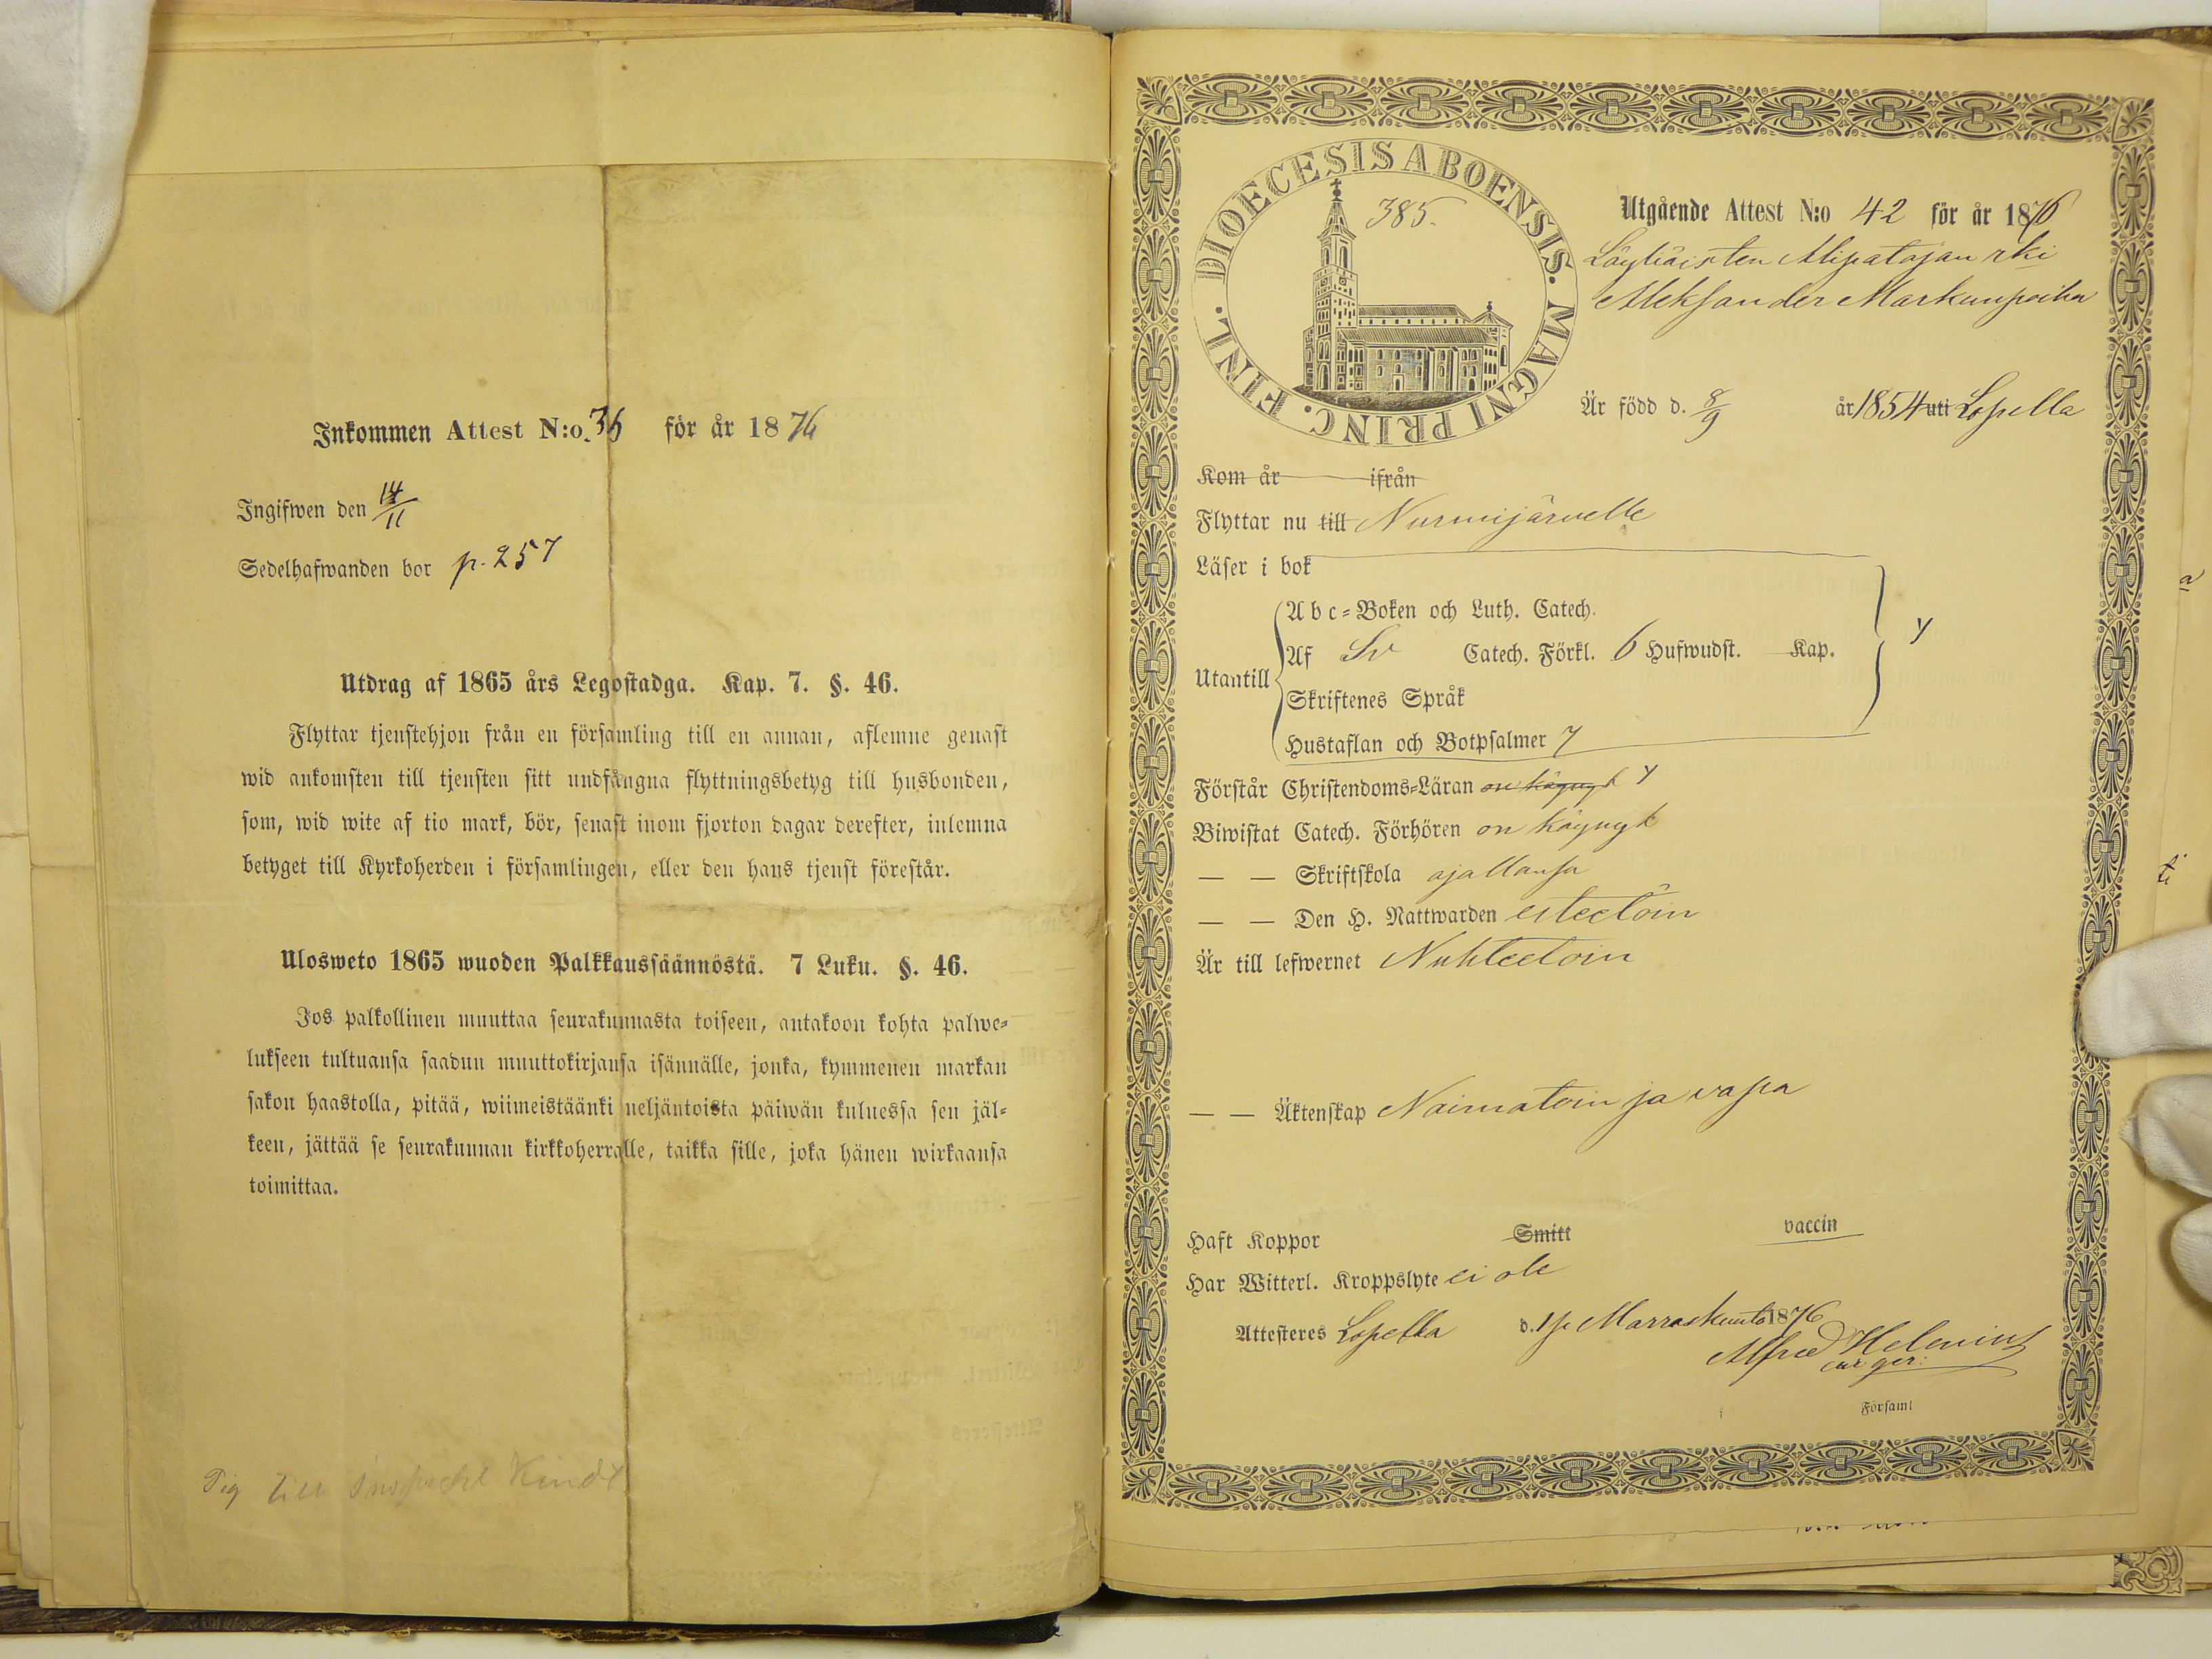 Inkommen Attest N:o 36 för år 1876
Ingifwen den 14/11
Sedelhafwanden bor p. 257
Utdrag af 1865 års Legostadga. Kap. 7. §. 46.
Flyttar tjenstehjon från en församling till en annan, aflemne genast
wid ankomsten till tjensten sitt undfångna flyttningsbetyg till husbonden,
som, wid wite af tio mark, bör, senast inom fjorton dagar derefter, inlemna
betyget till Kyrkoherden i församlingen, eller den hans tjenst förestår.
Ulosweto 1865 wuoden Palkkaussäännöstä. 7 Luku. §. 46.
Jos palkollinen muuttaa seurakunnasta toiseen, antakoon kohta palwe=
lukseen tultuansa saadun muuttokirjansa isännälle, jonka, kymmenen markan
sakon haastolla, pitää, wiimeistäänki neljäntoista päiwän kuluessa sen jäl=
keen, jättää se seurakunnan kirkkoherralle, taikka sille, joka hänen wirkaansa
toimittaa.
Pig till Kindt
DIOECESIS ABOENSIS. MAGNI PRINC. FINL.
385.
Utgående Attest N:o 42 för år 1876
Löyliäisten Alipatajan rki
Aleksander Markunpoika
Är född d. 8/9 år 1854 uti Lopella
Kom år ifrån
Flyttar nu till Nurmijärvelle
Läser i bok
Utantill
Abc=Boken och Luth. Catech.
Af Sv Catech. Förkl. 6 Hufwudst. Kap.
Skriftenes Språk
Hustaflan och Botpsalmer 7
Förstår Christendoms=Läran on käynyt y
Biwistat Catech. Förhören on käynyt
— — Skriftskola ajallansa
— — Den H. Nattwarden esteetöin
Är till lefwernet Nuhteetoin
— — Äktenskap Naimatoin ja vapa
Haft Koppor Smitt vaccin
Har Witterl. Kroppslyte ei ole
Attesteres Lopella d. 1 p. Marraskuuta 1876
Alfred Helenius
Församl